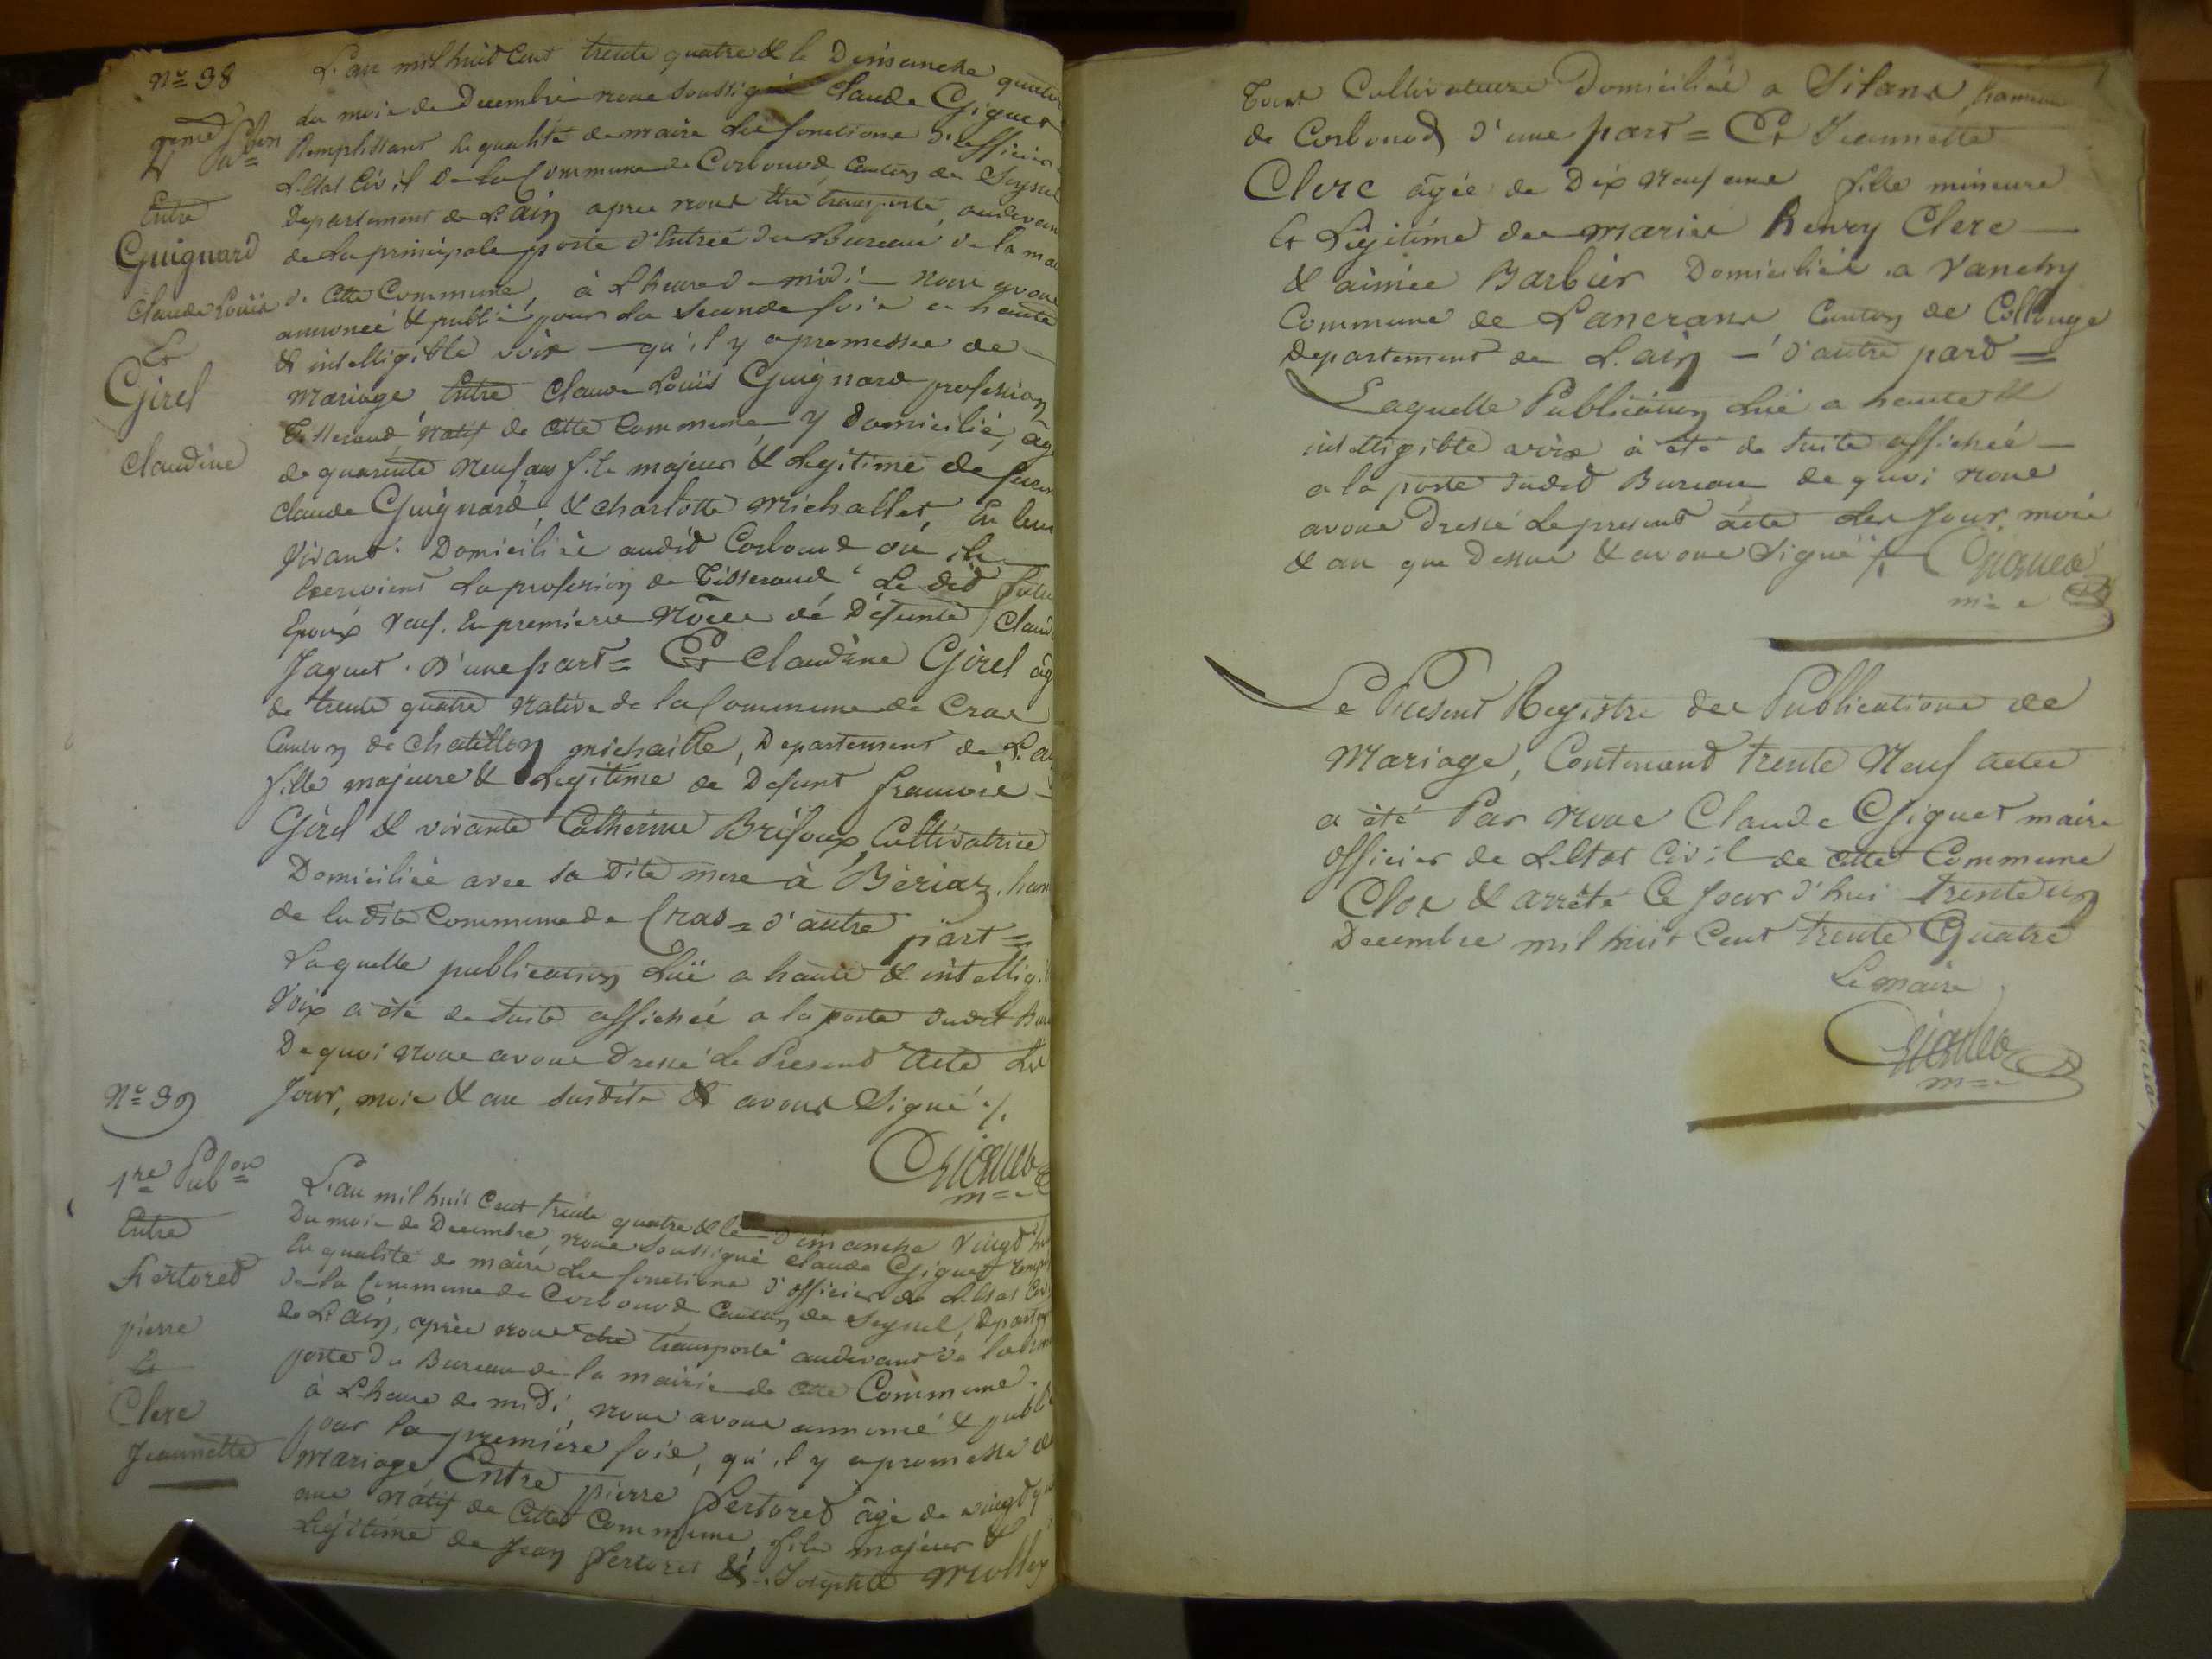 N° 38
2eme Pubon
Entre
Guignard
Claude Louis
Et
Girel
Claudine
L'an mil huit Cent trente quatre & le Dimanche
du mois de Decembre nous soussigné Claude Giguet
Remplissant la qualité de maire les fonctions d'officier
L'Etat Civil De la Commune de Corbonod Canton de Seyssel
Departement de L'Ain apres nous être transporté, audevan
de la principale porte d'Entrée du Bureau de la mai
de Cette Commune, à L'heure de midi nous avons
annoncé & publié pour la seconde fois a haute
& intelligible voix qu'il y a promesse de
Mariage Entre Claude Louis Guignard profession
Tisserand, Natif de cette Commune y Domicilié, âgé
de quarante Neuf ans fils majeur & Legitime de
Claude Guignard & Charlotte Michallet, En leur
Vivant Domiciliés audit Corbonod où ils
Exercoient La profession de Tisserand, Le dit futur
Epoux Veuf En premieres Nôces de Défunte Claud
Jaquet. D'une part = Et Claudine Girel ag
de trente quatre Native de la Commune de Cras
Canton de Chatillon michaille, Departement de L'ai
fille majeure & Legitime de Defunt francois
Girel & vivante Catherine Brifoux Cultivatrice
Domiciliée avec sa Dite mere à Bériaz ham
de la dite Commune de Cras = d'autre part =
Laquelle publication Luë a haute & intelligi
Voix a été de suite affichée a la porte dudit Bur
De quoi Nous avons Dressé Le Present Acte Les
Jour, mois & an susdits & avons Signé ./.
Giguet
m=e
N° 39
1re Pubon
Entre
Fertoret
pierre
Et
Clerc
Jeannette
L'an mil huit Cent trente quatre & le Dimanche Vingt hu
Du mois de Decembre, nous soussigné Claude Giguet remp
En qualité de maire Les fonctions d'officier de L'Etat Civ
De la Commune de Corbonod Canton de Seyssel, Départem
de L'Ain, après nous être transporté audevant de la
porte du Bureau de la mairie de cette Commune
à L'heure de midi, nous avons annoncé & publi
pour la première fois, qu'il y a promesse de
Mariage Entre pierre Fertoret âgé de vingt
ans Natif de Cette Commune, fils majeur &
Légitime de Jean Fertoret & Josephte
Tous Cultivateurs Domiciliés a Silans hameau
de Corbonod d'une part = Et Jeannette
Clerc âgée de Dix Neuf ans fille mineure
Et Légitime des mariés henry Clerc
& aimée Barbier Domiciliés a Vanchy
Commune de Lancrans Canton de Collonge
Departement de L'ain - d'autre part =
Laquelle Publication Luë a haute &
intelligible voix à été de suite affichée
a la porte dudit Bureau de quoi nous
avons Dressé Le present acte Les Jour, mois
& an que Dessus & avons Signé ./. Giguet
m=e
Le Present Registre des Publications de
Mariage, Contenant trente Neuf actes
a été Par Nous Claude Giguet maire
officier de L'Etat Civil de cette Commune
Clos & arrêté Ce Jour d'hui trente un
Decembre mil huit Cent trente Quatre
Le maire
Giguet
m=e